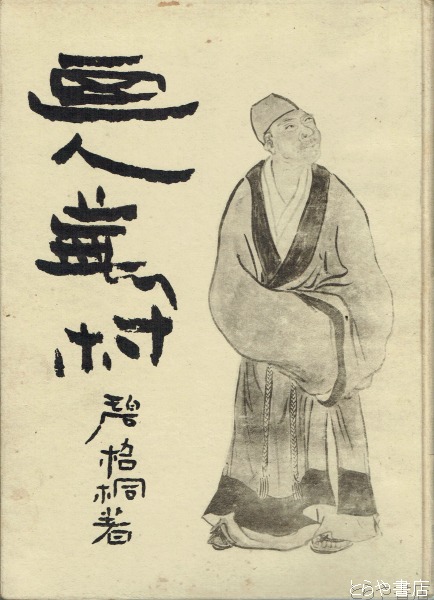 画人蕪村
碧梧桐著
とらや書店